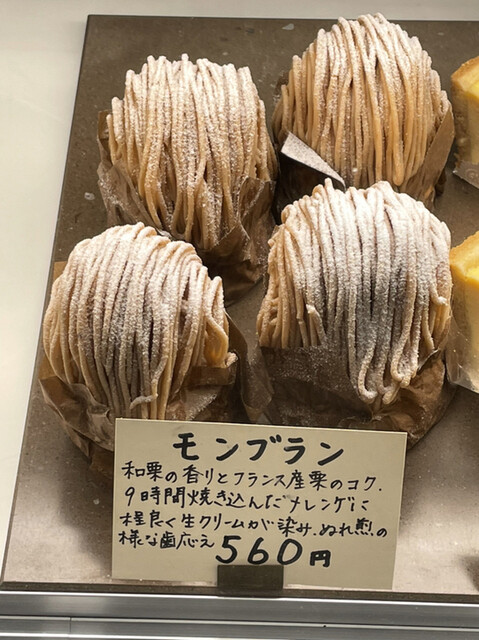 モンブラン
和栗の香りとフランス産栗のコク、
9時間焼き込んだメレンゲに
程良く生クリームが染み、ぬれ煎の
様な歯応え 560円